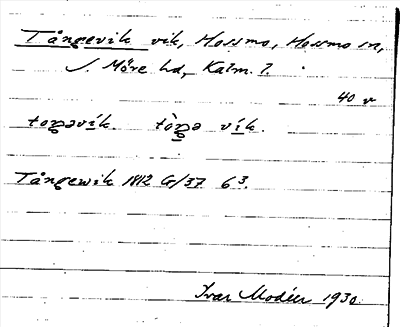 Tångevik vik, Hossmo, Hossmo sn,
S. Möre hd, Kalm. l.
40 v
toŋəvík. tòŋə vík.
Tångewik 1812 G/37 63.
Ivar Modéer 1930.